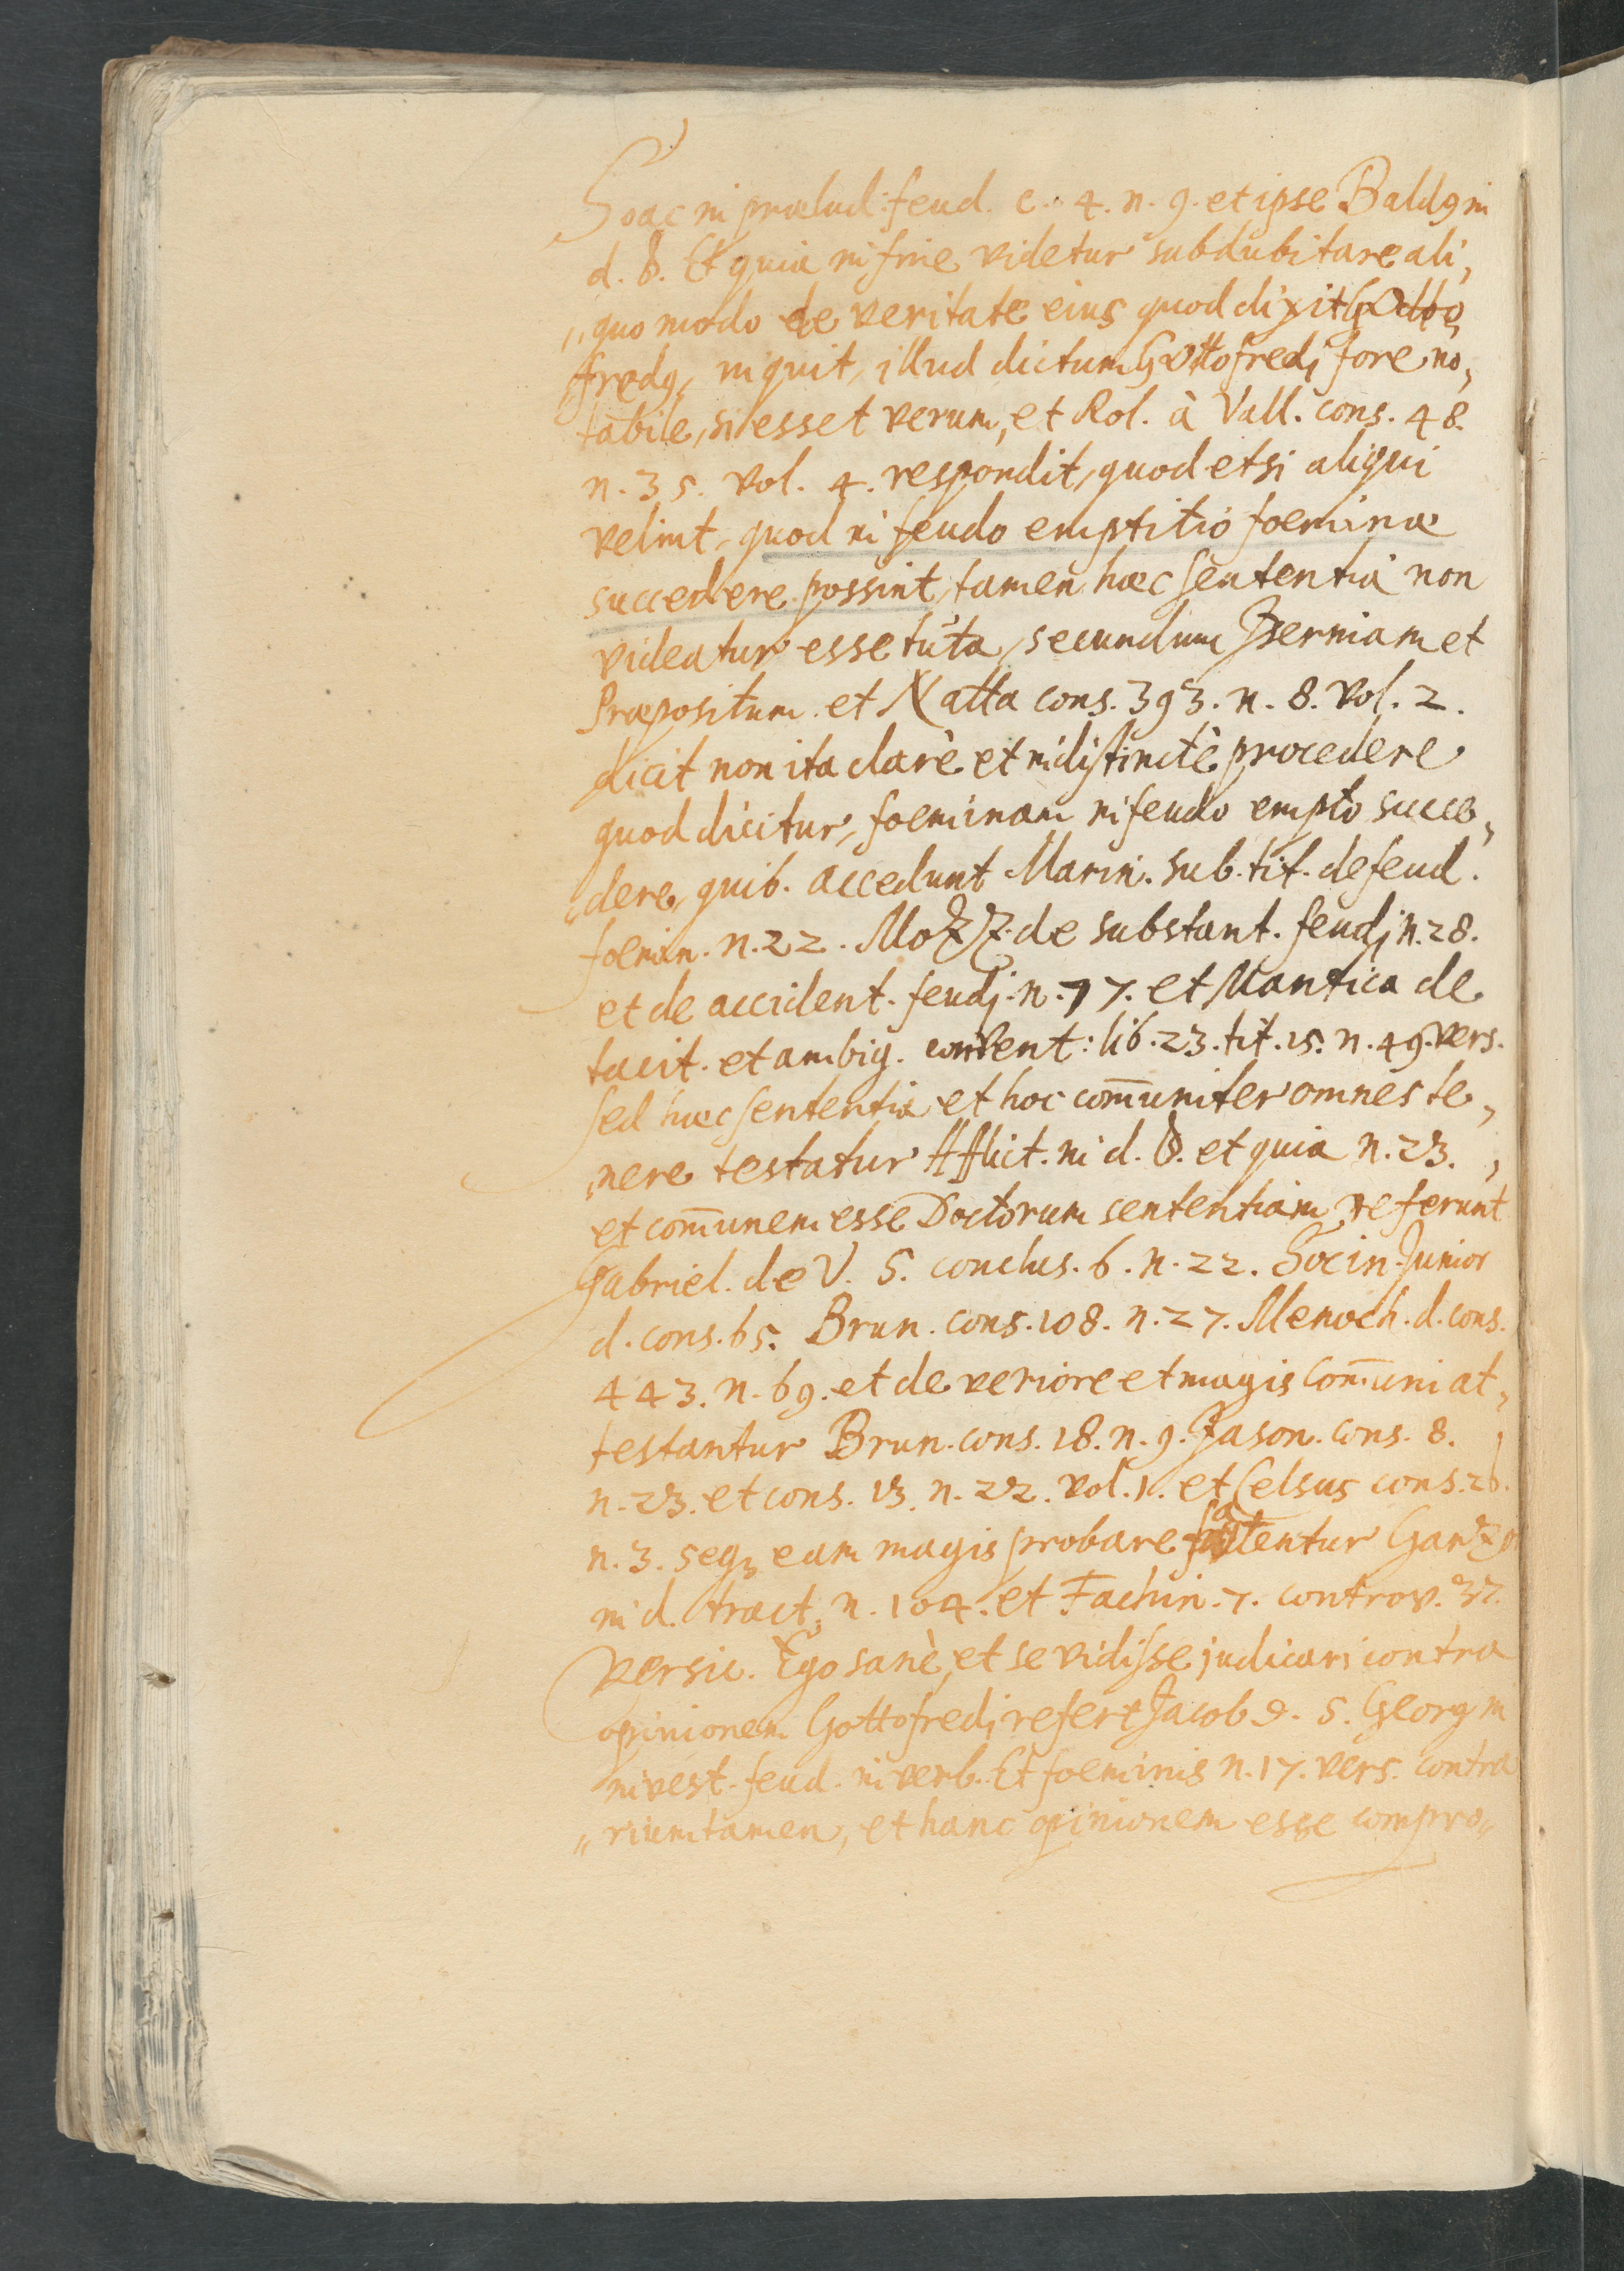 Soac in prælud: feud. c. 4. n. 9. et ipse Baldꝰ in
d. §. Et quia in fine videtur subdubitare ali,
,,quo modo de veritate eius quod dixit Gotto,
fredꝰ, inquit, illud dictum Gottofredi fore no,
tabile, si esset verum, et Rol. à Vall. cons. 48.
n. 35. vol. 4. respondit, quod etsi aliqui
velint, quod in feudo emptitio foeminæ
succedere possint, tamen hæc sententia non
videatur esse tuta, secundum Iserniam et
Præpositum. et Natta cons. 393. n. 8. vol. 2.
dicit non ita clarè et indistinctè procedere
quod dicitur, foeminam in feudo empto succe,
,,dere, quib. accedunt Marin. sub. tit. de feud.
foemin. n. 22. Mozz. de substant. feudi n. 28.
et de accident. feudi. n. 77. et Mantica de
tacit. et ambig. convent: lib. 23. tit. 15. n. 49. vers.
sed hæc sententia et hoc com̄uniter omnes te,
,nere testatur Afflict. in d. §. et quia n. 23. ,
et com̄unem esse Doctorum sententiam referunt
Gabriel. de V. S. conclus. 6. n. 22. Socin. Junior
d. cons. 65. Brun. cons. 108. n. 27. Menoch. d. cons.
443. n. 69. et de veriore et magis com̄uni at,
testantur Brun. cons. 18. n. 9. Jason. cons. 8.
n. 23. et cons. 13. n. 22. vol. 1. et Celsus cons. 26.
n. 3. seqꝫ eam magis probare fatentur
in d. tract. n. 104. et Fachin. 7. controv. 37.
versic. Ego sanè, et se vidisse judicari contra
opinionem Gottofredi refert Jacob. d. S. Georg in
invest. feud. in verb. Et foeminis n. 17. vers. contra
,,rium tamen, et hanc opinionem esse compro,,